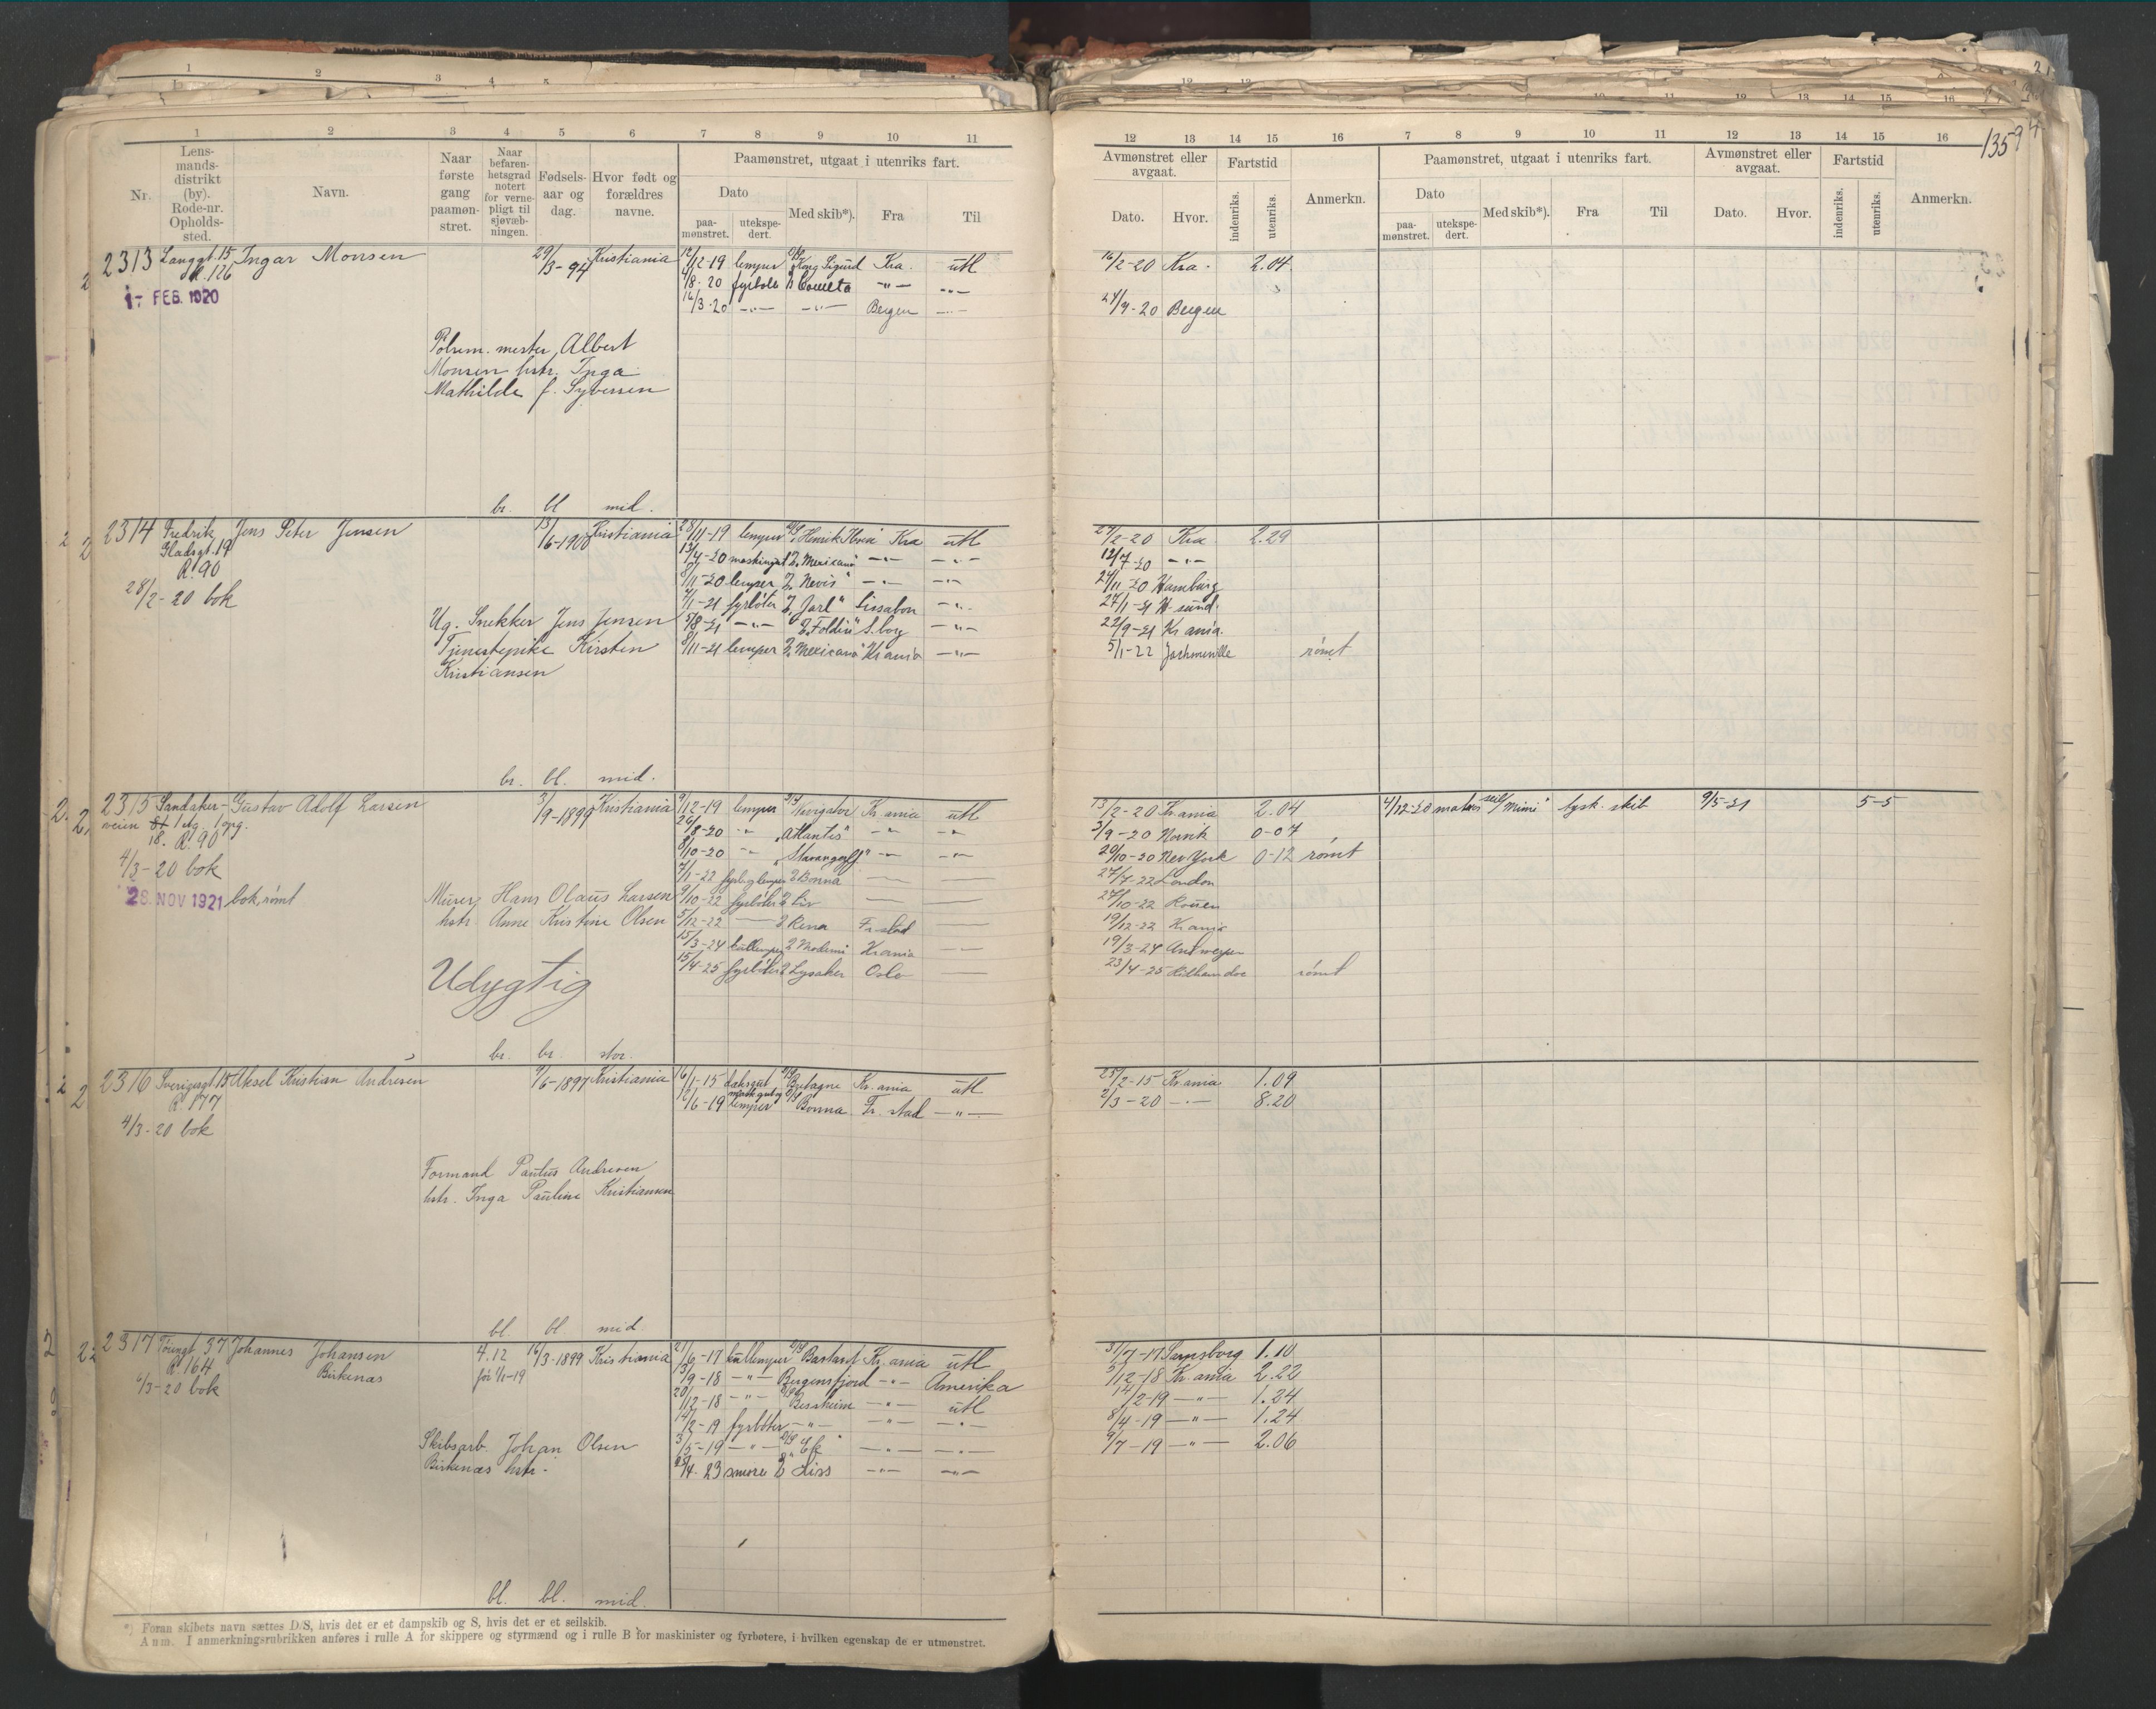 1 2 3 4 5 6 7 8 9 10 11
Nr.
Lens-
mands-
distrikt
(by).
Rode-nr.
Opholds-
sted.
Navn.
Naar
første
gang
paamøn-
stret.
Naar
befaren-
hetsgrad
notert
for verne-
pligt til
sjøvæb-
ningen.
Fødsels-
aar og
dag.
Hvor født og
forældres
navne.
Paamønstret, utgaat i utenriks fart.
Dato
paa-
mønstret.
utekspe-
dert.
Med skib*).
Fra
Til
12 13 14 15 16 7 8 9 10 11 12 13 14 15 16
1359
Avmønstret eller
avgaat.
Dato.
Hvor.
Fartstid
indenriks.
utenriks.
Anmerkn.
Paamønstret, utgaat i utenriks fart.
Dato
paa-
mønstret.
utekspe-
dert.
Med skib*).
Fra
Til
Avmønstret eller
avgaat.
Dato.
Hvor.
Fartstid
indenriks.
utenriks.
Anmerkn.
2313 Langgt. 15 Ingar Monsen 29/3-94 Kristiania 12/12-19 lemper D/S Kong Sigurd Kra. utl 16/2-20 Kra. 2.04
R. 126 4/8-20 fyrbøt D Cometa -"- -"-
17 FEB. 1920 16/3-20 -"- -"- Bergen -"- 24/4-20 Bergen
Polsem. mester, Albert
Monsen hstr. Inga
Mathilde f. Syversen
br. bl mid.
2314 Fredrik Jens Peter Jensen 13/6-1900 Kristiania 28/11-19 lemper D/S Henrik Ibsen Kra utl 27/2-20 Kra 2.29
Gladsgt. 19 13/4-20 maskingut D. Mexicano -"- -"- 12/7-20 -"-
R. 90 8/11-20 lemper D. Nevis" -"- -"- 24/11-20 Hamburg
28/2-20 bok 4/1-21 fyrbøter D. Jarl" Lissabon -"- 27/1-21 H-sund.
Ug. Snekker Jens Jensen 5/8-21 -"- D. Foldin" S.borg -"- 22/9-21 Kr.ania.
Tjenestepike Kirsten 8/11-21 lemper D. Mexicano" Kr.ania -"- 5/1-22 rømt
Kristiansen
br. bl. mid.
2315 Sandaker- Gustav Adolf Larsen 3/9-1899 Kristiania 9/12-19 lemper D/S Navigator Kr.ania utl 13/2-20 Kr.ania 2.04 4/12-20 matros seil/ Mimi" tysk. skib 9/5-21 5-5
veien 1 etg. 1 opg. 26/8-20 -"- "Atlantis" -"- -"- 3/9-20 Narvik 0-07
18. R. 90 8/10-20 -"- "Stavangerfj" -"- -"- 20/10-20 New York 0-12 rømt
4/3-20 bok 7/1-22 fyrb. og lemper D Bonna — — 27/7-22 London
28. NOV 1921 bok, rømt Murer Hans Olaus Larsen 9/10-22 fyrbøter D Liv — — 27/10-22 Rouen
hstr. Anne Kristine Olsen 5/12-22 — D Rena Fr.stad — 19/12-22 Kr.ania
15/3-24 kullemper D Modemi Kr.ania — 19/3-24 Antwerpen
Udygtig 15/4-25 fyrbøter D Lysaker Oslo — 23/4-25 rømt
br. br. stor.
2316 Sverigesgt. 15 Aksel Kristian Andresen 9/6-1897 Kristiania 16/1-15 daksgut D/S Bretagne Kr.ania utl 25/2-15 Kr.ania 1.09
R. 177 12/6-19 lemper D/S Bonna Fr. stad -"- 2/3-20 -"- 8.20
4/3-20 bok
Formand Paulus Andresen
hstr. Inga Pauline Kristiansen
bl. bl mid.
2317 Tøiengt. 37 Johannes Johansen 4.12 16/3-1899 Kristiania 21/6-17 kullemper D/S Bastant Kr.ania utl 31/7-17 Sarpsborg 1.10
R. 164 Birkenæs før 1/1-19 13/9-18 -"- Bergensfjord -"- Amerika 5/12-18 Kr.ania 2.22
6/3-20 bok 20/12-18 -"- D/S Bessheim -"- utl 14/2-19 -"- 1.24
14/2-19 fyrbøter -"- -"- -"- 8/4-19 -"- 1.24
Skibsarb. Johan Olsen 3/5-19 -"- D/S Ek -"- -"- 9/7-19 -"- 2.06
Birkenæs hstr. - 25/4-23 smører D Liss -"- -"-
bl. bl. mid.
*) Foran skibets navn sættes D/S, hvis det er et dampskib og S, hvis det er et seilskib.
Anm. I anmerkningsrubrikken anføres i rulle A for skippere og styrmænd og i rulle B for maskinister og fyrbøtere, i hvilken egenskap de er utmønstret.